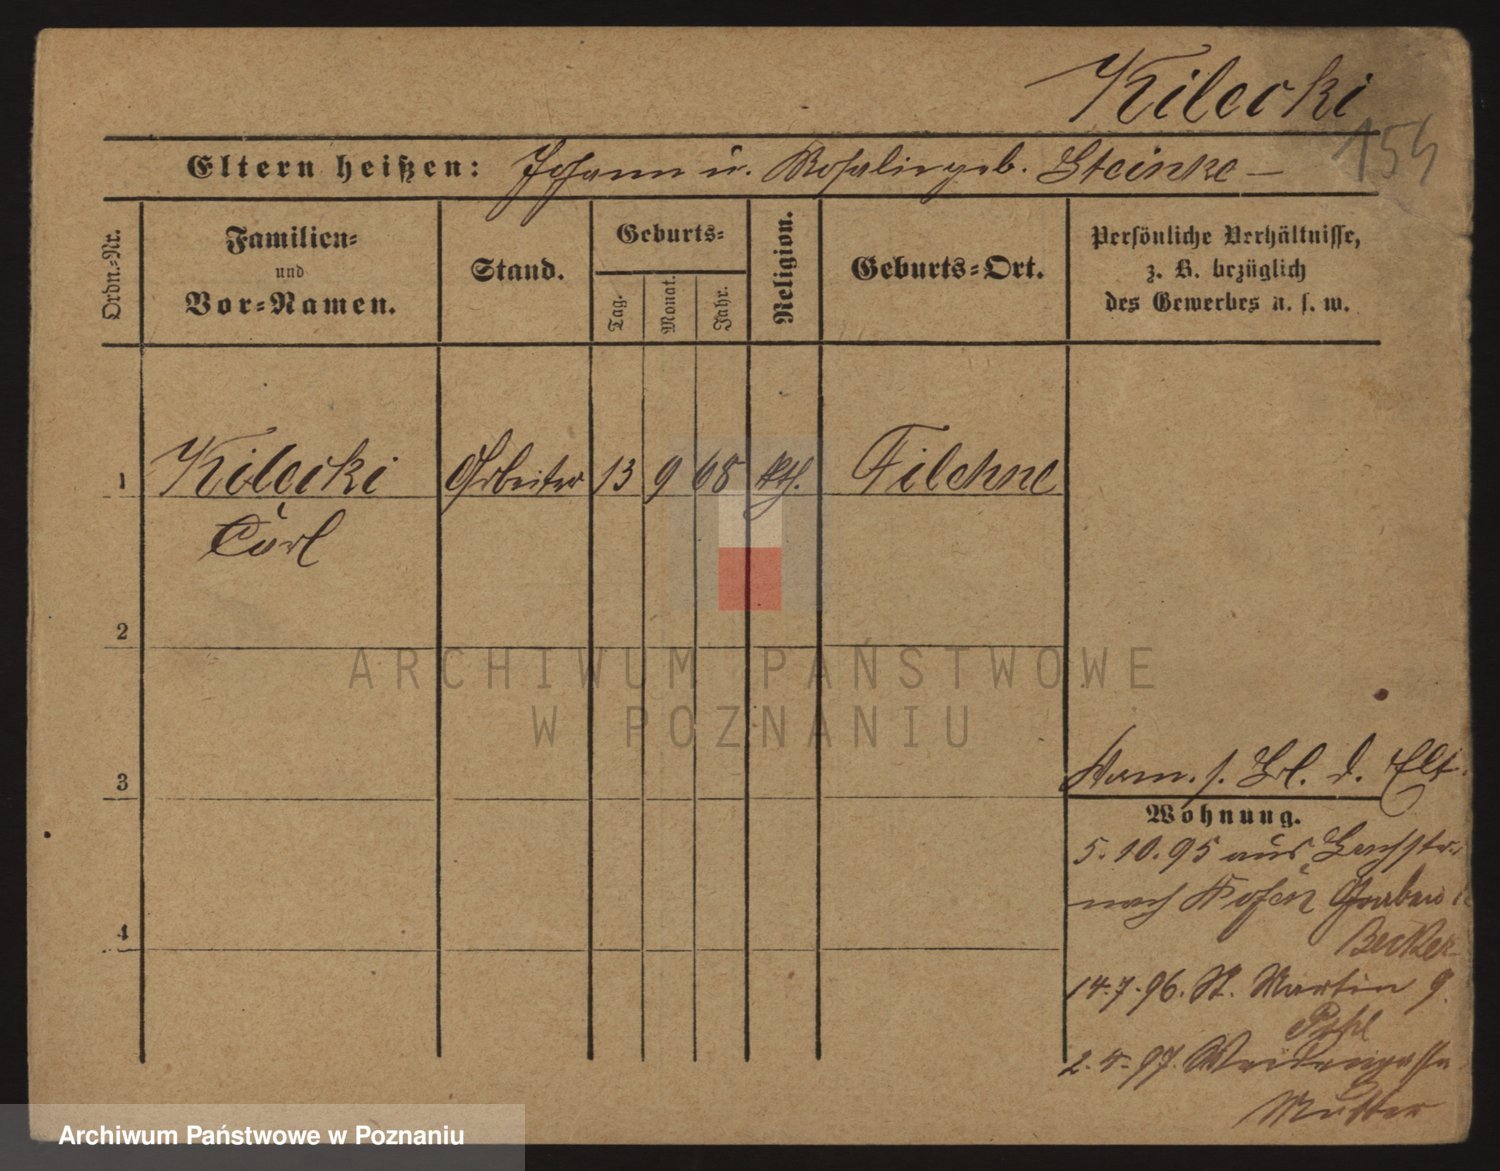 Kilecki
154
Eltern heißen: Johann u. Rosalie geb. Steinke —
Ordn.-Nr.
Familien-
und
Vor-Namen.
Stand.
Geburts-
Tag.
Monat.
Jahr.
Religion.
Geburts-Ort.
Persönliche Verhältnisse,
z. B. bezüglich
des Gewerbes u. s. w.
1 Kilecki Arbeiter 13 9 68 kth. Filehne
Carl
2
3
4
ARCHIWUM PAŃSTWOWE
W POZNANIU
s. d. Elt.
Wohnung.
5.10.95 aus Bachstr.
nach Graben
Becker
14.7.96. St. Martin 9.
Pohl
2.4.97. Weidengasse
Mutter
Archiwum Państwowe w Poznaniu